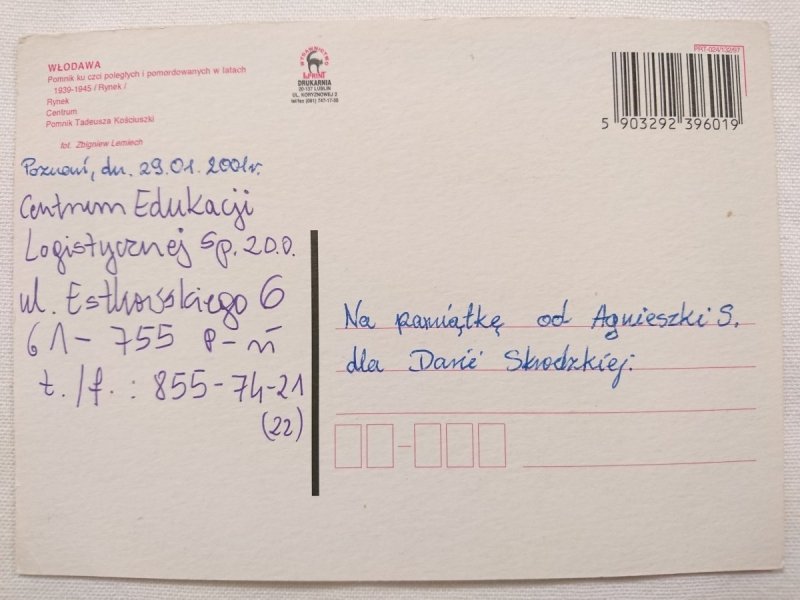 WŁODAWA
Pomnik ku czci poległych i pomordowanych w latach
1939-1945 / Rynek /
Rynek
Centrum
Pomnik Tadeusza Kościuszki
fot. Zbigniew Lemiech
WYDAWNICTWO
DRUKARNIA
20-137 LUBLIN
UL. KORYZNOWEJ 2
tel/fax (081) 747-17-38
PRT-024/132/97
5 903292 396019
Poznań, dn. 29.01.2001r.
Centrum Edukacji
Logistycznej sp. z o.o.
ul. Estkowskiego 6
61-755 P-ń
t./f.: 855-74-21
(22)
Na pamiątkę od Agnieszki S.
dla Darii Skrodzkiej.